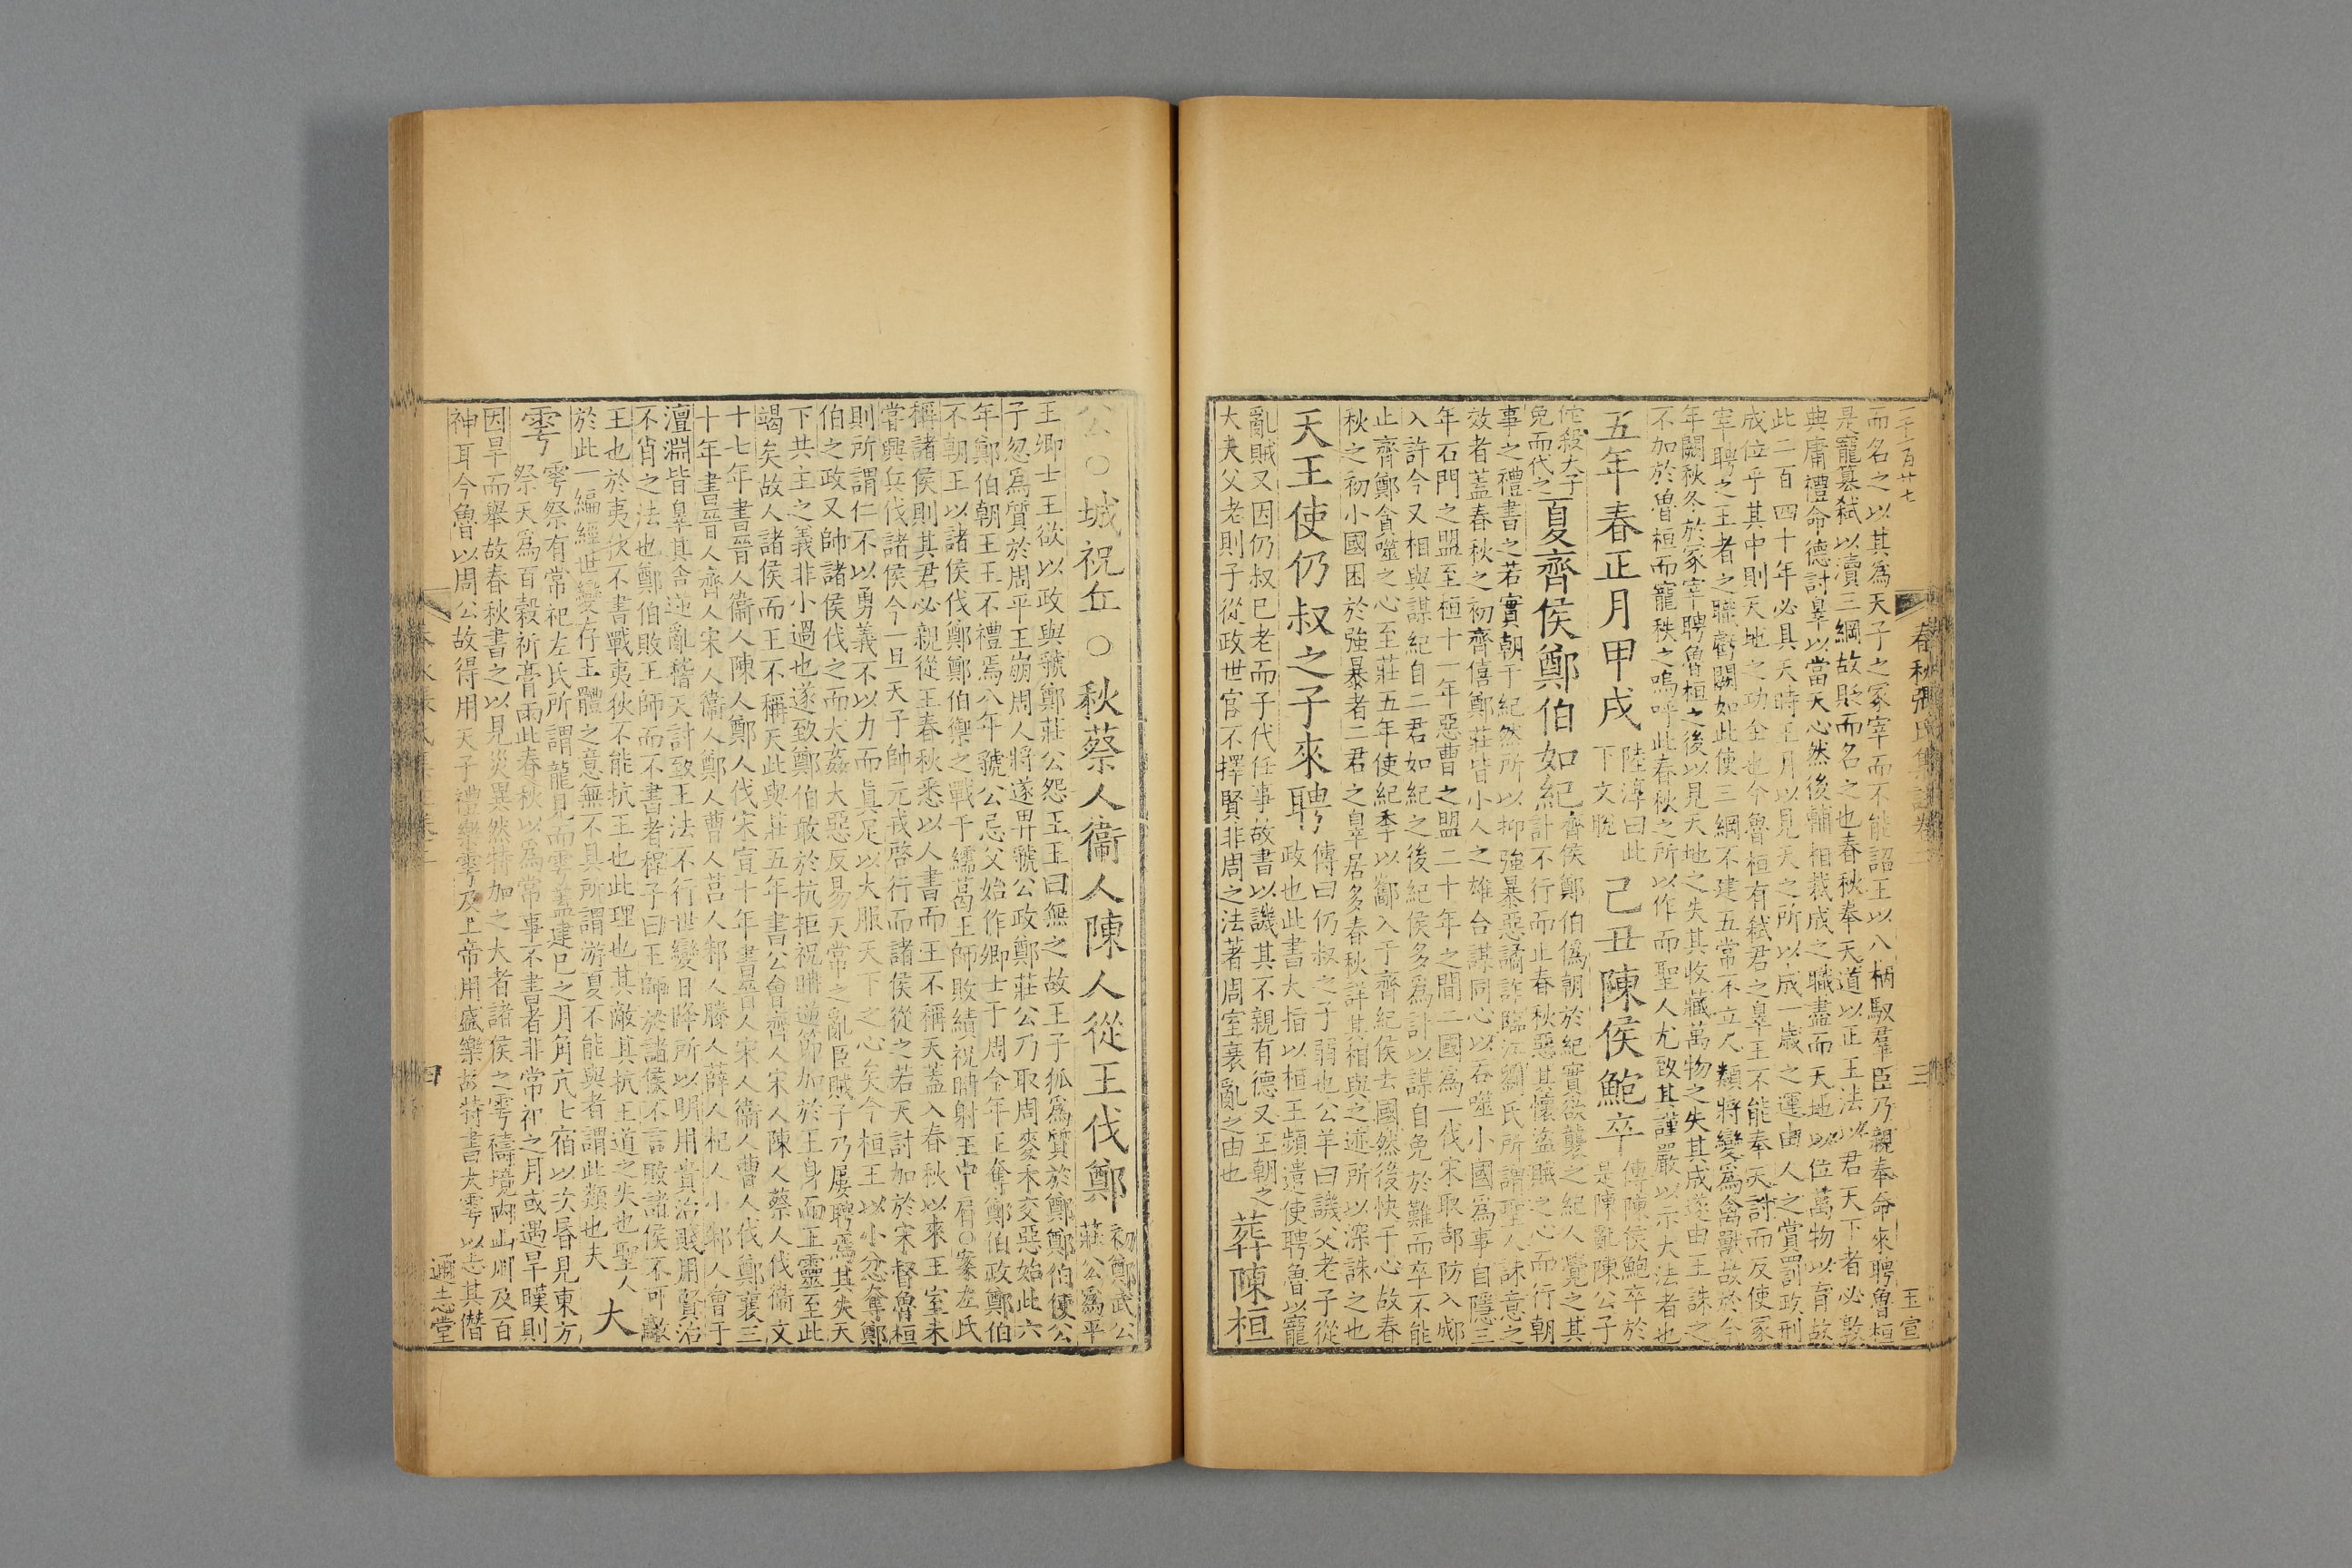 春秋張氏集註卷
三
玉宣
而名之以其爲天子之冢宰而不能詔王以八柄馭羣臣乃親奉命來聘魯桓
是寵篡弒以瀆三綱故貶而名之也春秋奉天道以正王法以君天下者必敦
典庸禮命德討辠以當天心然後輔相裁成之職盡而天地以位萬物以育故
此二百四十年必具天時王月以見天之所以成一歲之運由人之賞罰政刑
成位乎其中則天地之功全也今魯桓有弒君之辠王不能奉天討而反使冢
宰聘之王者之職虧闕如此使三綱不建五常不立人類將變爲禽獸故於今
年闕秋冬於冢宰聘魯桓之後以見天地之失其收藏萬物之失其成遂由王誅之
不加於魯桓而寵秩之嗚呼此春秋之所以作而聖人尤致其謹嚴以示大法者也
五年春正月甲戌
陸淳曰此
下文脫
己丑陳侯鮑卒
傳陳侯鮑卒於
是陳亂陳公子
佗殺大子
免而代之
夏齊侯鄭伯如紀
齊侯鄭伯僞朝於紀實欲襲之紀人覺之其
計不行而止春秋惡其懷盜賊之心而行朝
事之禮書之若實朝于紀然所以抑強暴惡譎詐臨江劉氏所謂聖人誅意之
效者蓋春秋之初齊僖鄭莊皆小人之雄合謀同心以吞噬小國爲事自隱三
年石門之盟至桓十一年惡曹之盟二十年之間二國爲一伐宋取郜防入郕
入許今又相與謀紀自二君如紀之後紀侯多爲計以謀自免於難而卒不能
止齊鄭貪噬之心至莊五年使紀季以酅入于齊紀侯去國然後快于心故春
秋之初小國困於強暴者二君之辠居多春秋詳其相與之迹所以深誅之也
天王使仍叔之子來聘
傳曰仍叔之子弱也公羊曰譏父老子從
政也此書大指以桓王頻遣使聘魯以寵
亂賊又因仍叔已老而子代任事故書以譏其不親有德又王朝之
大夫父老則子從政世官不擇賢非周之法著周室衰亂之由也
葬陳桓
公○城祝丘○秋蔡人衞人陳人從王伐鄭
初鄭武公
莊公爲平
王卿士王欲以政與虢鄭莊公怨王王曰無之故王子狐爲質於鄭鄭伯使公
子忽爲質於周平王崩周人將遂畀虢公政鄭莊公乃取周麥禾交惡始此六
年鄭伯朝王王不禮焉八年虢公忌父始作卿士于周今年王奪鄭伯政鄭伯
不朝王以諸侯伐鄭鄭伯禦之戰于繻葛王師敗績祝聃射王中肩○案左氏
稱諸侯則其君必親從王春秋悉以人書而王不稱天蓋入春秋以來王室未
嘗興兵伐諸侯今一旦天子帥元戎啓行而諸侯從之若天討加於宋督魯桓
則所謂仁不以勇義不以力而眞足以大服天下之心矣今桓王以小忿奪鄭
伯之政又帥諸侯伐之而大姦大惡反易天常之亂臣賊子乃屢聘焉其失天
下共主之義非小過也遂致鄭伯敢於抗拒祝聃逆節加於王身而王靈至此
竭矣故人諸侯而王不稱天此與莊五年書公會齊人宋人陳人蔡人伐衞文
十七年書晉人衞人陳人鄭人伐宋宣十年書晉人宋人衞人曹人伐鄭襄三
十年書晉人齊人宋人衞人鄭人曹人莒人邾人滕人薛人杞人小邾人會于
澶淵皆辠其舍逆亂稽天討致王法不行世變日降所以明用貴治賤用賢治
不肖之法也鄭伯敗王師而不書者程子曰王師於諸侯不言敗諸侯不可敵
王也於夷狄不書戰夷狄不能抗王也此理也其敵其抗王道之失也聖人
於此一編經世變存王體之意無不具所謂游夏不能與者謂此類也夫
大
雩
雩祭有常祀左氏所謂龍見而雩蓋建巳之月角亢七宿以次昏見東方
祭天爲百穀祈膏雨此春秋以爲常事不書者非常祀之月或遇旱暵則
因旱而舉故春秋書之以見災異然特加之大者諸侯之雩禱境內山川及百
神耳今魯以周公故得用天子禮樂雩及上帝用盛樂故特書大雩以志其僭
四
通志堂